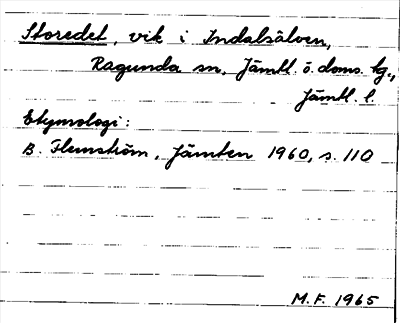 Storedet, vik i Indalsälven,
Ragunda sn, Jämtl. ö. doms. tg.,
Jämtl. l.
Etymologi:
B. Flemström, Jämten 1960, s. 110
M.F. 1965